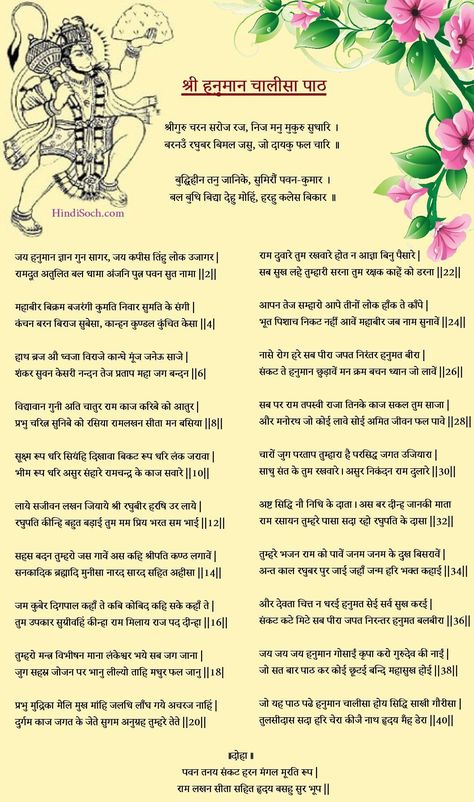 श्री हनुमान चालीसा पाठ
श्रीगुरु चरन सरोज रज, निज मनु मुकुरु सुधारि ।
बरनउँ रघुबर बिमल जसु, जो दायकु फल चारि ॥
बुद्धिहीन तनु जानिके, सुमिरौं पवन-कुमार ।
बल बुधि बिद्या देहु मोहिं, हरहु कलेस बिकार ॥
HindiSoch.com
जय हनुमान ज्ञान गुन सागर, जय कपीस तिंहु लोक उजागर |
रामदूत अतुलित बल धामा अंजनि पुत्र पवन सुत नामा ||2||
महाबीर बिक्रम बजरंगी कुमति निवार सुमति के संगी |
कंचन बरन बिराज सुबेसा, कान्हन कुण्डल कुंचित केसा ||4||
हाथ ब्रज औ ध्वजा विराजे कान्धे मूंज जनेऊ साजे |
शंकर सुवन केसरी नन्दन तेज प्रताप महा जग बन्दन ||6|
विद्यावान गुनी अति चातुर राम काज करिबे को आतुर |
प्रभु चरित्र सुनिबे को रसिया रामलखन सीता मन बसिया ||8||
सूक्ष्म रूप धरि सियंहि दिखावा बिकट रूप धरि लंक जरावा |
भीम रूप धरि असुर संहारे रामचन्द्र के काज सवारे ||10||
लाये सजीवन लखन जियाये श्री रघुबीर हरषि उर लाये |
रघुपति कीन्हि बहुत बड़ाई तुम मम प्रिय भरत सम भाई ||12||
सहस बदन तुम्हरो जस गावें अस कहि श्रीपति कण्ठ लगावें |
सनकादिक ब्रह्मादि मुनीसा नारद सारद सहित अहीसा ||14||
जम कुबेर दिगपाल कहाँ ते कबि कोबिद कहि सके कहाँ ते |
तुम उपकार सुग्रीवहिं कीन्हा राम मिलाय राज पद दीन्हा ||16||
तुम्हरो मन्त्र विभीषन माना लंकेश्वर भये सब जग जाना |
जुग सहस्र जोजन पर भानु लील्यो ताहि मधुर फल जानु ||18|
प्रभु मुद्रिका मेलि मुख मांहि जलधि लाँघ गये अचरज नाहिं |
दुर्गम काज जगत के जेते सुगम अनुग्रह तुम्हरे तेते ||20||
राम दुवारे तुम रखवारे होत न आज्ञा बिनु पैसारे |
सब सुख लहे तुम्हारी सरना तुम रक्षक काहें को डरना ||22||
आपन तेज सम्हारो आपे तीनों लोक हाँक ते काँपे |
भूत पिशाच निकट नहीं आवें महाबीर जब नाम सुनावें ||24||
नासे रोग हरे सब पीरा जपत निरंतर हनुमत बीरा |
संकट ते हनुमान छुड़ावें मन क्रम बचन ध्यान जो लावें ||26||
सब पर राम तपस्वी राजा तिनके काज सकल तुम साजा |
और मनोरथ जो कोई लावे सोई अमित जीवन फल पावे ||28||
चारों जुग परताप तुम्हारा है परसिद्ध जगत उजियारा |
साधु संत के तुम रखवारे। असुर निकंदन राम दुलारे ||30||
अष्ट सिद्धि नौ निधि के दाता। अस बर दीन्ह जानकी माता
राम रसायन तुम्हरे पासा सदा रहो रघुपति के दासा ||32||
तुम्हरे भजन राम को पावें जनम जनम के दुख बिसरावें |
अन्त काल रघुबर पुर जाई जहाँ जन्म हरि भक्त कहाई ||34||
और देवता चित्त न धरई हनुमत सेई सर्व सुख करई |
संकट कटे मिटे सब पीरा जपत निरन्तर हनुमत बलबीरा ||36||
जय जय जय हनुमान गोसाईं कृपा करो गुरुदेव की नाईं |
जो सत बार पाठ कर कोई छूटई बन्दि महासुख होई ||38||
जो यह पाठ पढे हनुमान चालीसा होय सिद्धि साखी गौरीसा |
तुलसीदास सदा हरि चेरा कीजै नाथ हृदय मँह डेरा ||40||
॥दोहा॥
पवन तनय संकट हरन मंगल मूरति रूप |
राम लखन सीता सहित हृदय बसहु सुर भूप ||